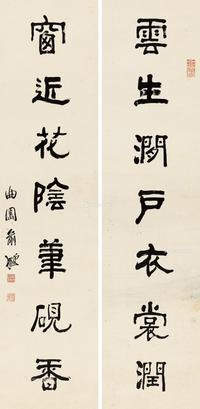 雲生澗户衣裳潤
窗近花陰筆硯香
曲園俞樾